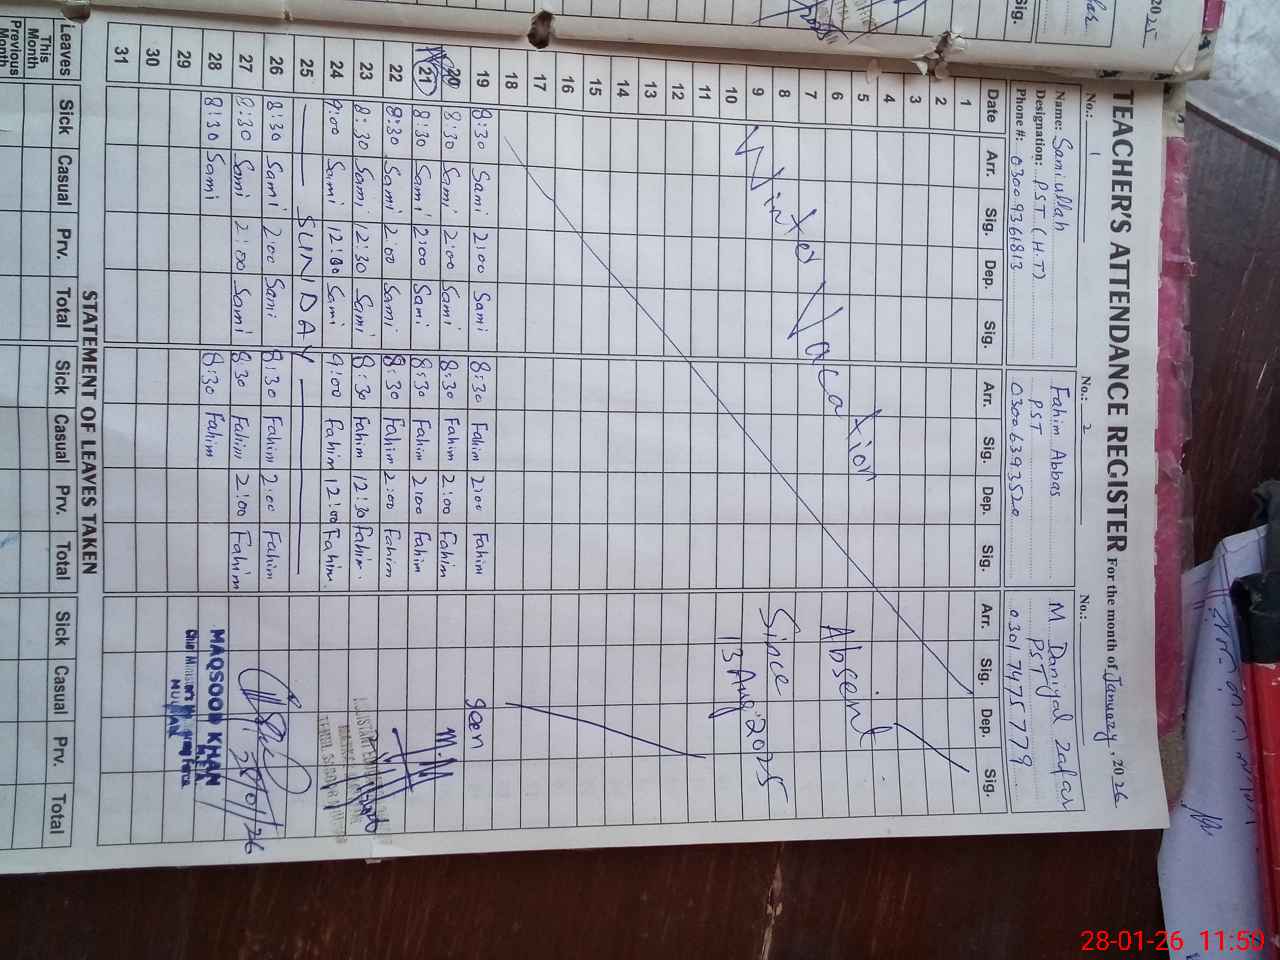 TEACHER'S ATTENDANCE REGISTER For the month of January, 2026
No.: 1 No.: 2 No.:
Name: Samiullah Fahim Abbas M Daniyal Zafar
Designation: PST (H.T) PST PST
Phone #: 03009361813 03006393520 03017475779
Date Arr. Sig. Dep. Sig. Arr. Sig. Dep. Sig. Arr. Sig. Dep. Sig.
1
2
3
4
5
6
7
8
9
10
11
12
13
14
15
16
17
18
Winter Vacation
Absent
Since
13 Aug. 2025
19 8:30 Sami 2:00 Sami 8:30 Fahim 2:00 Fahim
20 8:30 Sami 2:00 Sami 8:30 Fahim 2:00 Fahim
21 8:30 Sami 2:00 Sami 8:30 Fahim 2:00 Fahim
22 8:30 Sami 2:00 Sami 8:30 Fahim 2:00 Fahim
23 8:30 Sami 12:30 Sami 8:30 Fahim 12:30 Fahim.
24 9:00 Sami 12:00 Sami 9:00 Fahim 12:00 Fahim.
25 SUNDAY
26 8:30 Sami 2:00 Sami 8:30 Fahim 2:00 Fahim
27 8:30 Sami 2:00 Sami 8:30 Fahim 2:00 Fahim
28 8:30 Sami 8:30 Fahim
29
30
31
Seen
M.M
28/01/26
MAQSOOD KHAN
M.E.A
Chief Minister's Monitoring Force
MULTAN
STATEMENT OF LEAVES TAKEN
Leaves Sick Casual Prv. Total Sick Casual Prv. Total Sick Casual Prv. Total
This Month
Previous Month
2025
Sig.
28-01-26 11:50